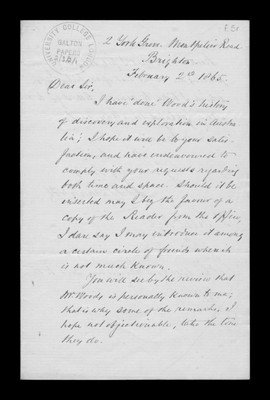 2 York Grove. Montpelier Road
Brighton
February 2nd 1865.
Dear Sir.
I have "done" Wood's history
of discovery and exploration in Austra
lia; I hope it will be to your satis-
faction; and have endeavoured to
comply with your requests regarding
both time and space. Should it be
inserted may I beg the favour of a
copy of the Reader from the office,
I dare say I may introduce it among
a certain circle of friends where it
is not much known.
You will see by the review that
Mr Woods is personally known to me;
that is why some of the remarks, I
hope not objectionable, take the tone
they do.
UNIVERSITY COLLEGE LONDON
GALTON
PAPERS